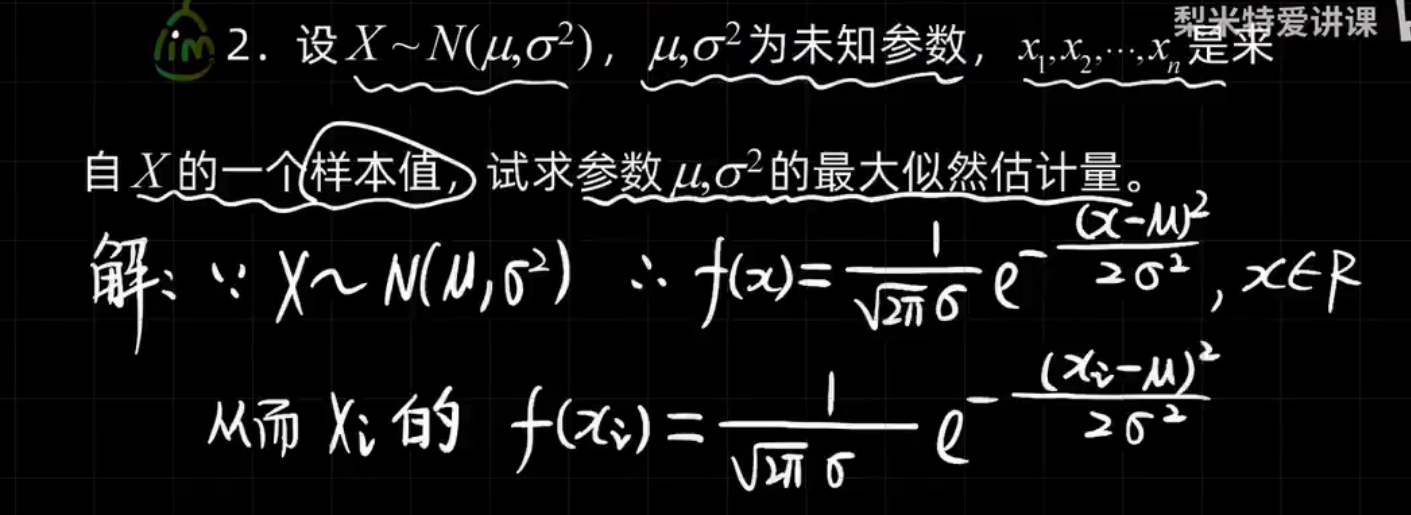 梨米特爱讲课
lim 2. 设 X ~ N(μ,σ²), μ,σ² 为未知参数, x₁,x₂,⋯,xₙ 是来
自 X 的一个样本值, 试求参数 μ,σ² 的最大似然估计量。
解: ∵ X ~ N(μ,σ²) ∴ f(x) = 1/(√2π σ) e^(-(x-μ)²/(2σ²)), x∈R
从而 Xᵢ 的 f(xᵢ) = 1/(√2π σ) e^(-(xᵢ-μ)²/(2σ²))